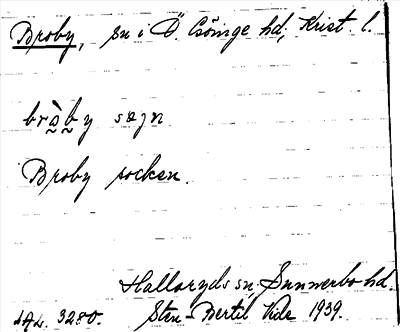 Broby, sn i Ö. Göinge hd, Krist. l.
bròby sǝgn
Broby socken.
Hallaryds sn, Sunnerbo hd.
ALL. 3280. Sten-Bertil Vide 1939.